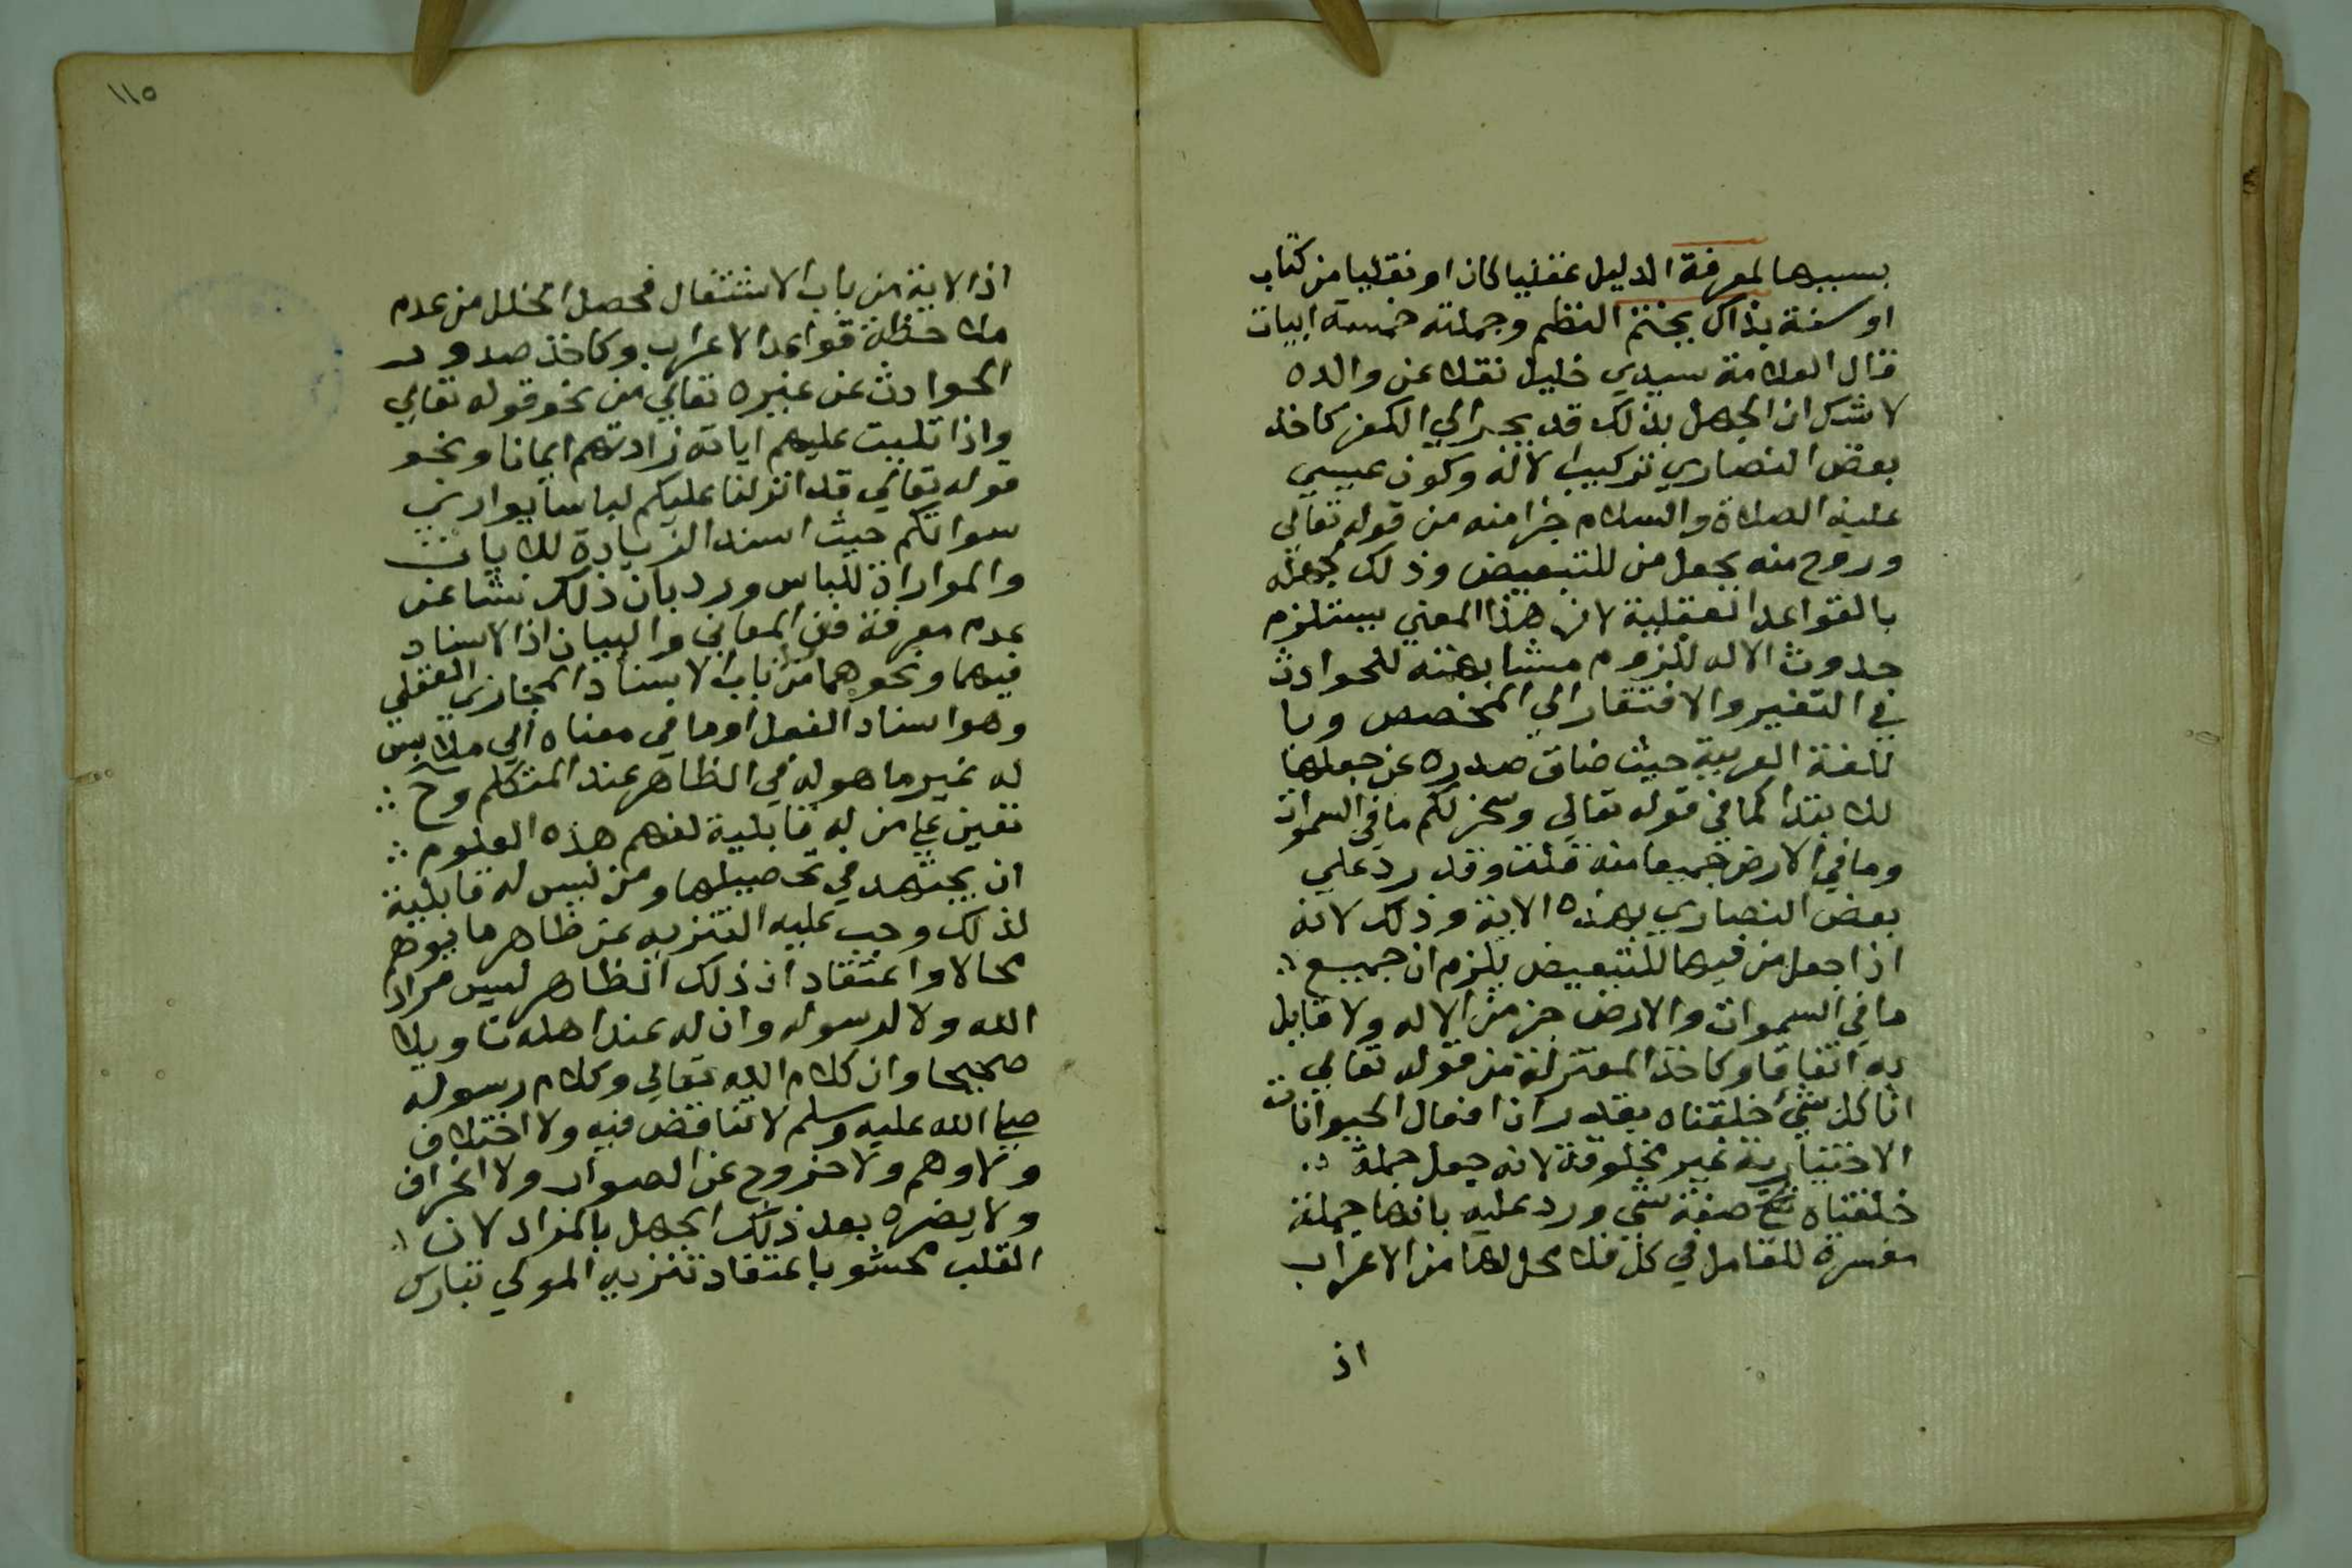 بسببها لمعرفة الدليل عقليا كان او نقليا من كتاب
او سنة بذاك يختتم النظم وجملته خمسة ابيات
قال العلامة سيدي خليل نقلا عن والده
لا شك ان الجهل بذلك قد يجر الي الكفر كاخذ
بعض النصاري تركيب الاله وكون عيسي
عليه الصلاة والسلام جزا منه من قوله تعالي
وروح منه بجعل من للتبعيض وذلك لجهله
بالقواعد العقلية لان هذا المعني يستلزم
حدوث الاله للزوم مشابهته للحوادث
في التغير والافتقار الي المخصص وبا
للغة العربية حيث ضاق صدره عن جعلها
للابتدا كما في قوله تعالي وسخر لكم ما في السموات
وما في الارض جميعا منه قلت وقد رد علي
بعض النصاري بهذه الاية وذلك لانه
اذا جعل من فيها للتبعيض يلزم ان جميع
ما في السموات والارض جز من الاله ولا قايل
به اتفاقا وكاخذ المعتزلة من قوله تعالي
انا كل شئ خلقناه بقدر ان افعال الحيوانات
الاختيارية غير مخلوقة لانه جعل جملة
خلقناه صفة شي ورد عليه بانها جملة
مفسرة للعامل في كل فلا محل لها من الاعراب
اذ
١١٥
اذ الاية من باب الاشتغال فحصل الخلل من عدم
ملاحظة قواعد الاعراب وكاخذ صدور
الحوادث عن غيره تعالي من نحو قوله تعالي
واذا تليت عليهم اياته زادتهم ايمانا ونحو
قوله تعالي قد انزلنا عليكم لباسا يواري
سواتكم حيث اسند الزيادة للايات
والمواراة للباس ورد بان ذلك نشا عن
عدم معرفة فن المعاني والبيان اذ الاسناد
فيهما ونحوهما من باب الاسناد المجازي العقلي
وهو اسناد الفعل او ما في معناه الي ملابس
له غير ما هو له في الظاهر عند المتكلم وح
تعين علي من له قابلية لفهم هذه العلوم
ان يجتهد في تحصيلها ومن ليس له قابلية
لذلك وجب عليه التنزيه عن ظاهر ما يوهم
محالا واعتقاد ان ذلك الظاهر ليس مراد
الله ولا لرسوله وان له عند اهله تاويلا
صحيحا وان كلام الله تعالي وكلام رسوله
صلي الله عليه وسلم لا تناقض فيه ولا اختلاف
ولا وهم ولا خروج عن الصواب ولا انحراف
ولا يضره بعد ذلك الجهل بالمراد لان
القلب محشو باعتقاد تنزيه المولي تبارك